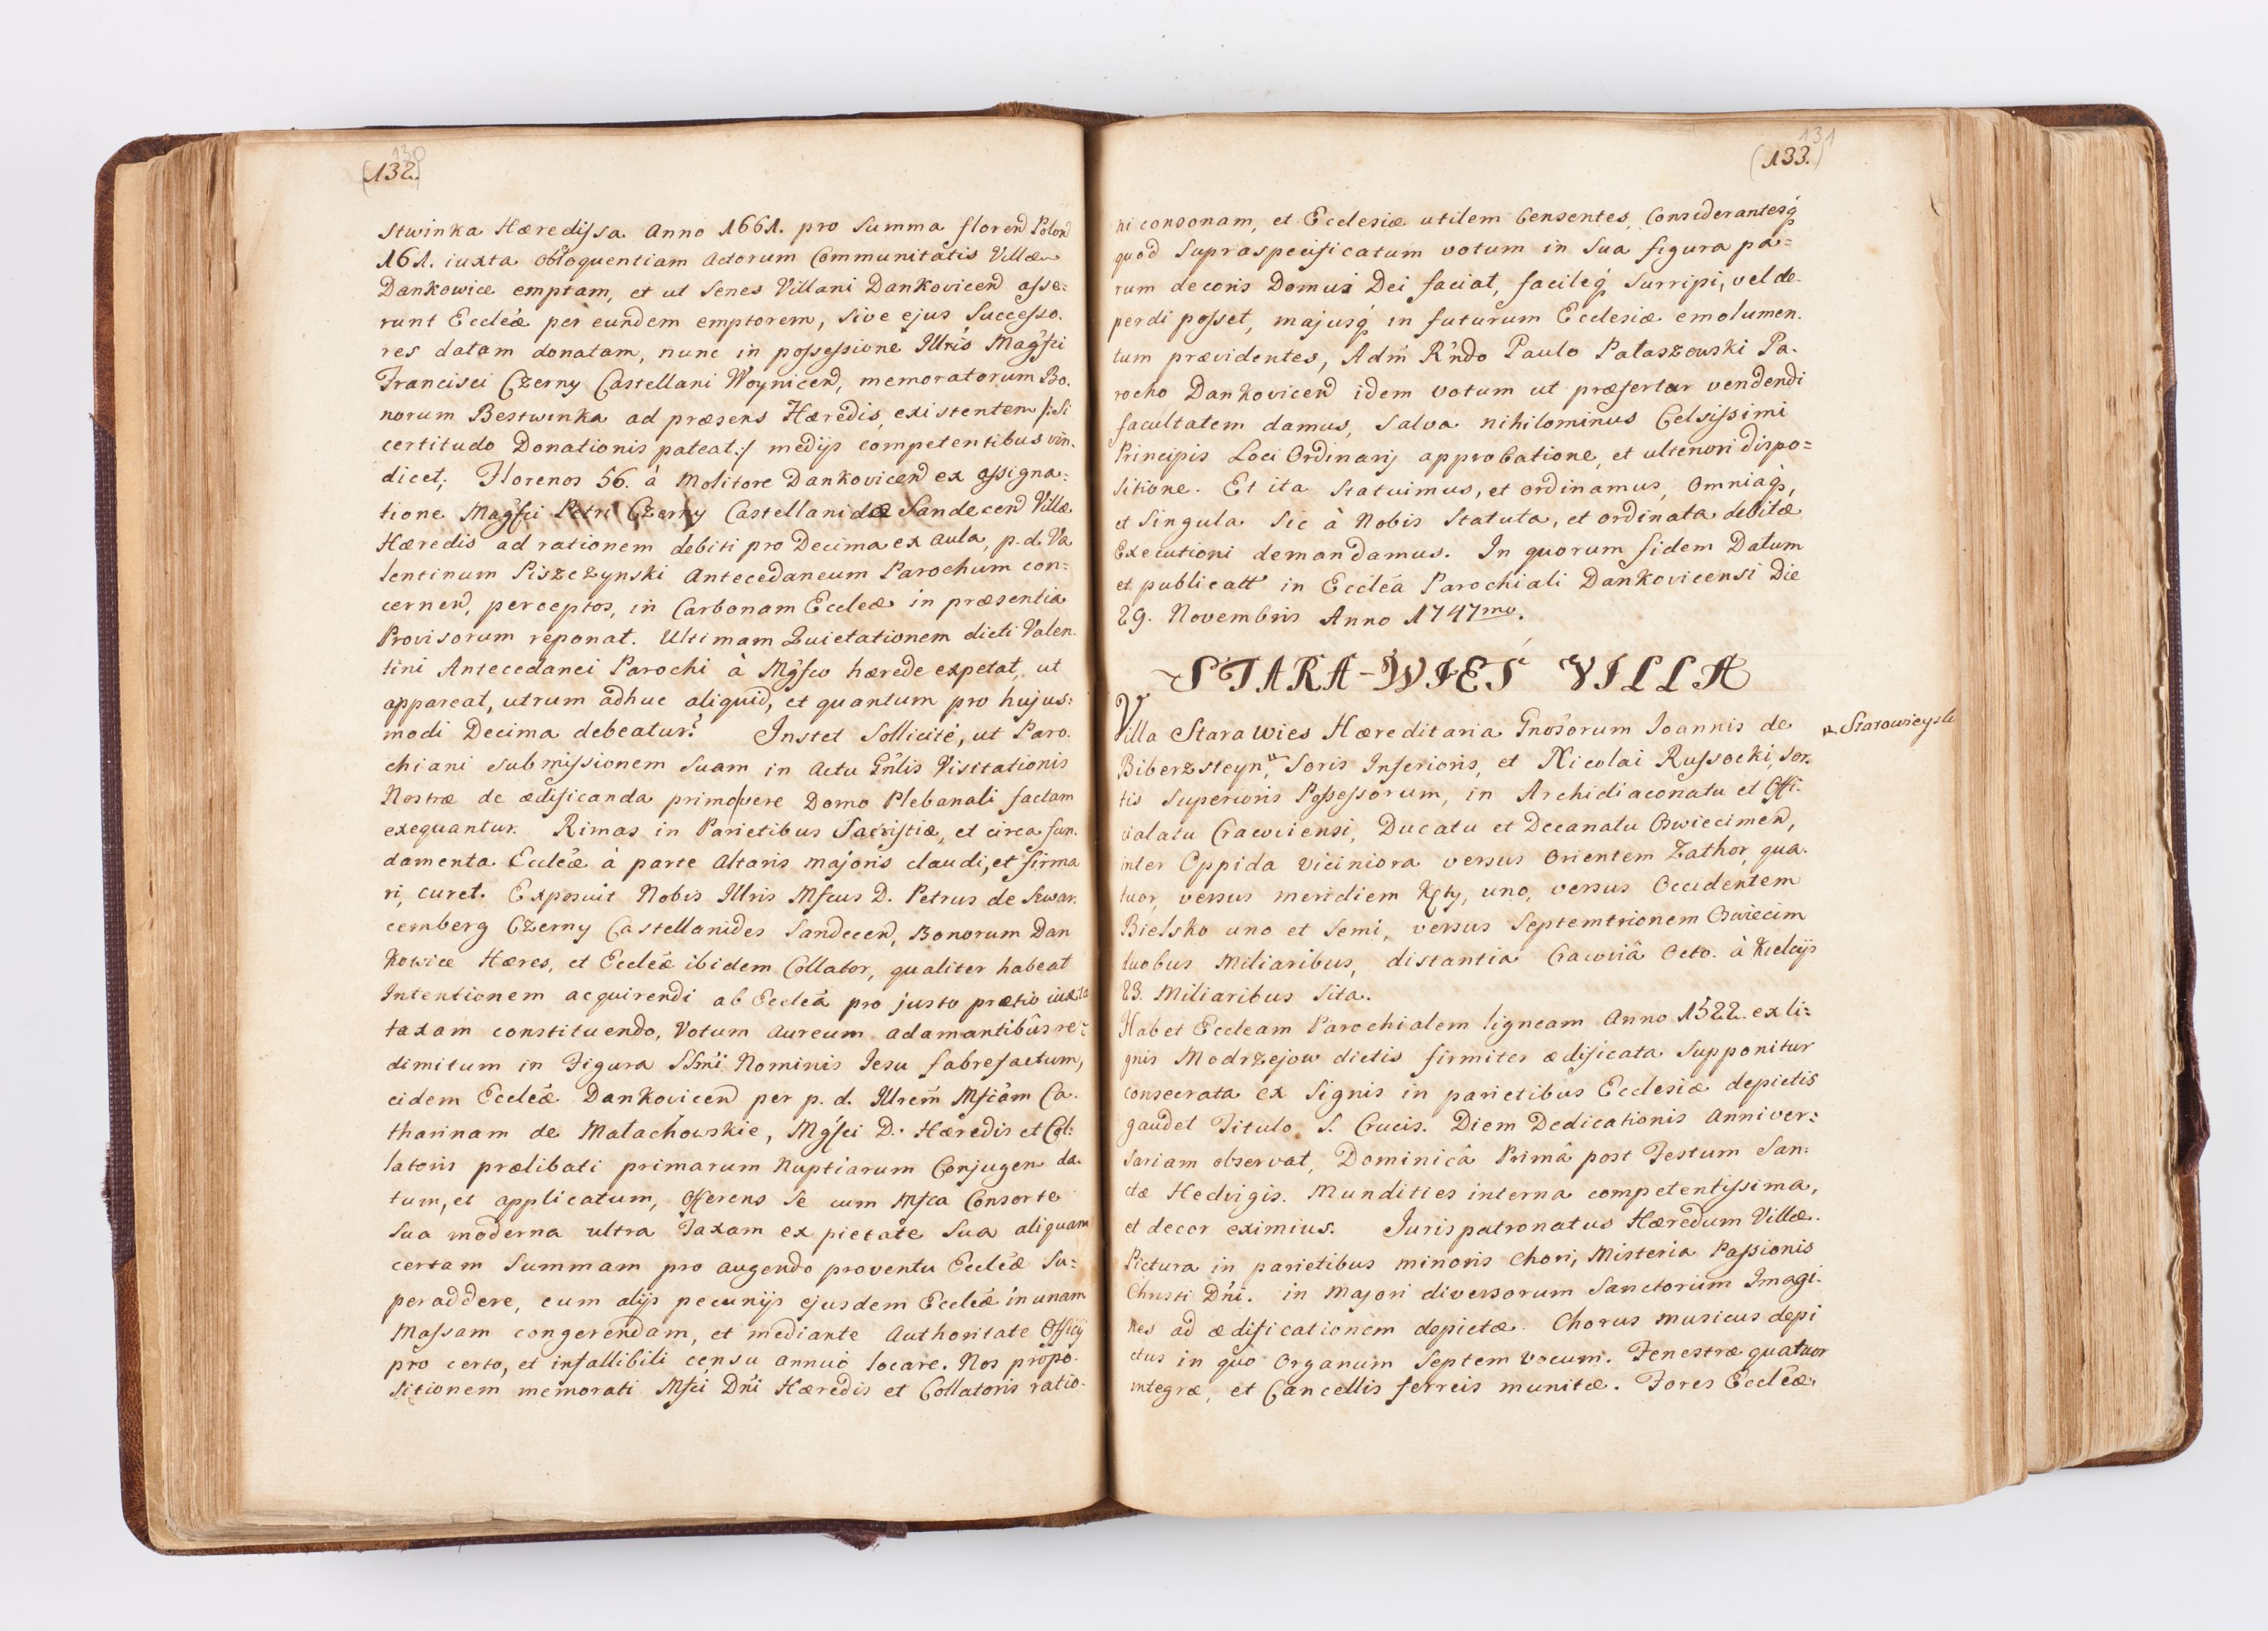 130
(132.)
stwinka Hæredissa Anno 1661. pro Summa floren̄ Polon̄
161. iuxta obloquentiam Actorum Communitatis Villæ
Dankowice emptam, et ut Senes Villani Dankovicen̄ asse:
runt Eccleæ per eundem emptorem, sive ejus Successo.
res datam donatam, nunc in possessione Illris Magfci
Francisci Czerny Castellani Woynicen̄, memoratorum Bo.
norum Bestwinka ad præsens Hæredis, existentem /:Si
certitudo Donationis pateat:/ medijs competentibus vin.
dicet; Florenos 56. à Molitore Dankovicen̄ ex assigna:
tione Magfci Petri Czerny Castellanidæ Sandecen̄ Villæ
Hæredis ad rationem debiti pro Decima ex aula, p. d. Va
lentinum Piszczynski Antecedaneum Parochum con:
cernen̄, perceptos, in Carbonam Eccleæ in præsentia
Provisorum reponat. Ultimam Quietationem dicti Valen.
tini Antecedanei Parochi à Mgfco hærede expetat, ut
appareat, utrum adhuc aliquid, et quantum pro hujus:
modi Decima debeatur? Instet Sollicité, ut Paro.
chiani submissionem suam in Actu Gnlis Visitationis
Nostræ de ædificanda primo vere Domo Plebanali factam
exequantur. Rimas in Parietibus Sacristiæ, et circa fun.
damenta Eccleæ à parte Altaris majoris claudi, et firma
ri, curet. Exposuit Nobis Illris Mfcus D. Petrus de Szwar.
cemberg Czerny Castellanides Sandecen̄, Bonorum Dan
kowice Hæres, et Eccleæ ibidem Collator, qualiter habeat
Intentionem acquirendi ab Ecclea pro justo prætio iuxta
taxam constituendo, Votum Aureum adamantibûs re:
dimitum in Figura SSmi Nominis Iesu fabrefactum,
eidem Eccleæ Dankovicen̄ per p. d. Illrem Mfcam Ca.
tharinam de Małachowskie, Mgfci D. Hæredis et Col:
latoris prælibati primarum Nuptiarum Conjugem da.
tum, et applicatum, Offerens Se cum Mfca Consorte
Sua moderna ultra Taxam ex pietate Sua aliquam
certam Summam pro augendo proventu Eccleæ Su:
peraddere, cum alijs pecunijs ejusdem Eccleæ in unam
Massam congerendam, et mediante Authoritate Officij
pro certo, et infallibili censu annuo locare. Nos propo.
sitionem memorati Mfci Dni Hæredis et Collatoris ratio.
131
(133.)
ni consonam, et Ecclesiæ utilem Censentes, Considerantesq́
quod Supraspecificatum votum in Sua figura pa=
rum decoris Domui Dei faciat, facileq́ Surripi, vel de.
perdi posset, majusq́ in futurum Ecclesiæ emolumen.
tum prævidentes, Adm R'ndo Paulo Pałaszowski Pa.
rocho Dankovicen̄ idem votum ut præfertur vendendi
facultatem damus, Salva nihilominus Celsissimi
Principis Loci Ordinarij approbatione, et ulteriori dispo=
sitione. Et ita Statuimus, et ordinamus, Omniaq́,
et Singula Sic à Nobis Statuta, et ordinata debitæ
Executioni demandamus. In quorum fidem Datum
et publicatt in Ecclea Parochiali Dankovicensi Die
29. Novembris Anno 1747mo.
STARA-WIEŚ VILLA
Villa Stara Wies Hæreditaria Gnosorum Ioannis de
Starowieyski
Biberzsteyn, Soris Inferioris, et Nicolai Russocki, Sor.
tis Superioris Possessorum, in Archidiaconatu et Offi.
cialatu Cracoviensi, Ducatu et Decanatu Oswiecimen̄,
inter Oppida viciniora versus Orientem Zathor, qua.
tuor, versus meridiem Kęty, uno, versus Occidentem
Bielsko uno et Semi, versus Septemtrionem Oswiecim
duobus Miliaribus, distantia Cracoviâ Octo. à Kielcijs
23. Miliaribus Sita.
Habet Eccleam Parochialem ligneam Anno 1522. ex li:
gnis Modrzejow dictis firmiter ædificata Supponitur
consecrata ex Signis in parietibus Ecclesiæ depictis
gaudet Titulo S. Crucis. Diem Dedicationis Anniver:
sariam observat, Dominicâ Primâ post Festum San:
ctæ Hedvigis. Mundities interna competentissima,
et decor eximius. Iurispatronatus Hæredum Villæ.
Pictura in parietibus minoris Chori, Misteria Passionis
Christi Dni. in Majori diversorum Sanctorum Imagi.
nes ad ædificationem depictæ. Chorus musicus depi
ctus in quo Organum Septem vocum. Fenestræ quatuor
integræ, et Cancellis ferreis munitæ. Fores Eccleæ